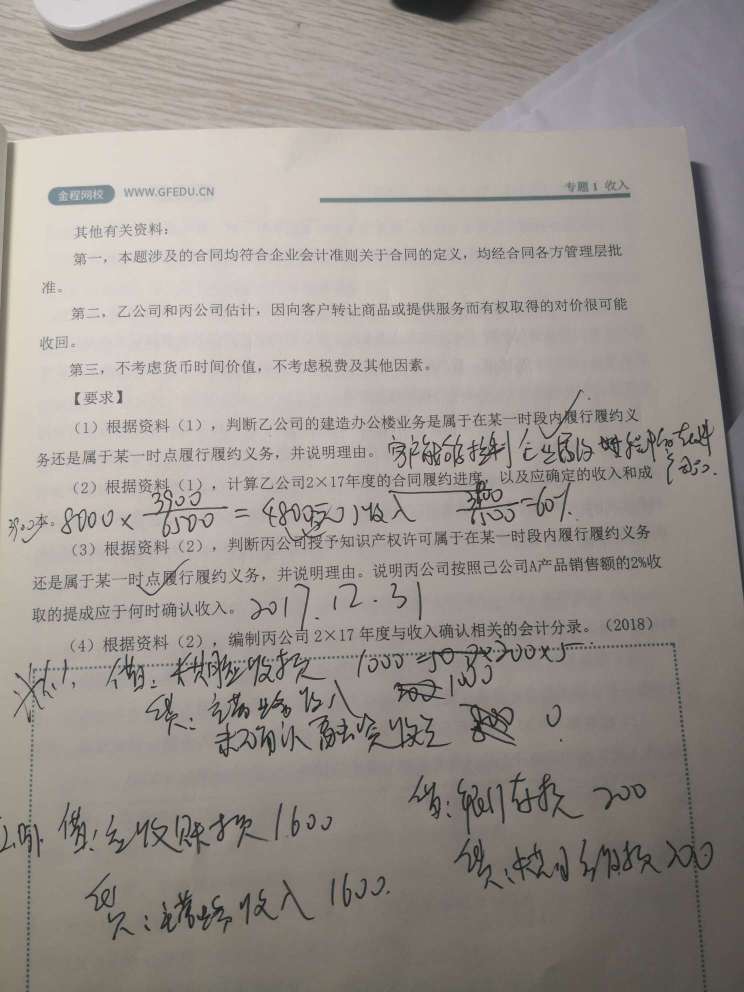 金程网校 WWW.GFEDU.CN 专题1 收入
其他有关资料：
第一，本题涉及的合同均符合企业会计准则关于合同的定义，均经合同各方管理层批
准。
第二，乙公司和丙公司估计，因向客户转让商品或提供服务而有权取得的对价很可能
收回。
第三，不考虑货币时间价值，不考虑税费及其他因素。
【要求】
（1）根据资料（1），判断乙公司的建造办公楼业务是属于在某一时段内履行履约义
务还是属于某一时点履行履约义务，并说明理由。 客户能够控制企业履约
（2）根据资料（1），计算乙公司2×17年度的合同履约进度，以及应确定的收入和成
3900 本。 8000 × 3900/6500 = 4800 收入 3900/6500 = 60%
（3）根据资料（2），判断丙公司授予知识产权许可属于在某一时段内履行履约义务
还是属于某一时点履行履约义务，并说明理由。说明丙公司按照己公司A产品销售额的2%收
取的提成应于何时确认收入。 2017.12.31
（4）根据资料（2），编制丙公司2×17年度与收入确认相关的会计分录。（2018）
借：长期应收款 1000 = 200×5
贷：主营业务收入 1000
未确认融资收益 0
借：应收账款 1600 借：银行存款 200
贷：主营业务收入 1600. 贷：长期应收款 200